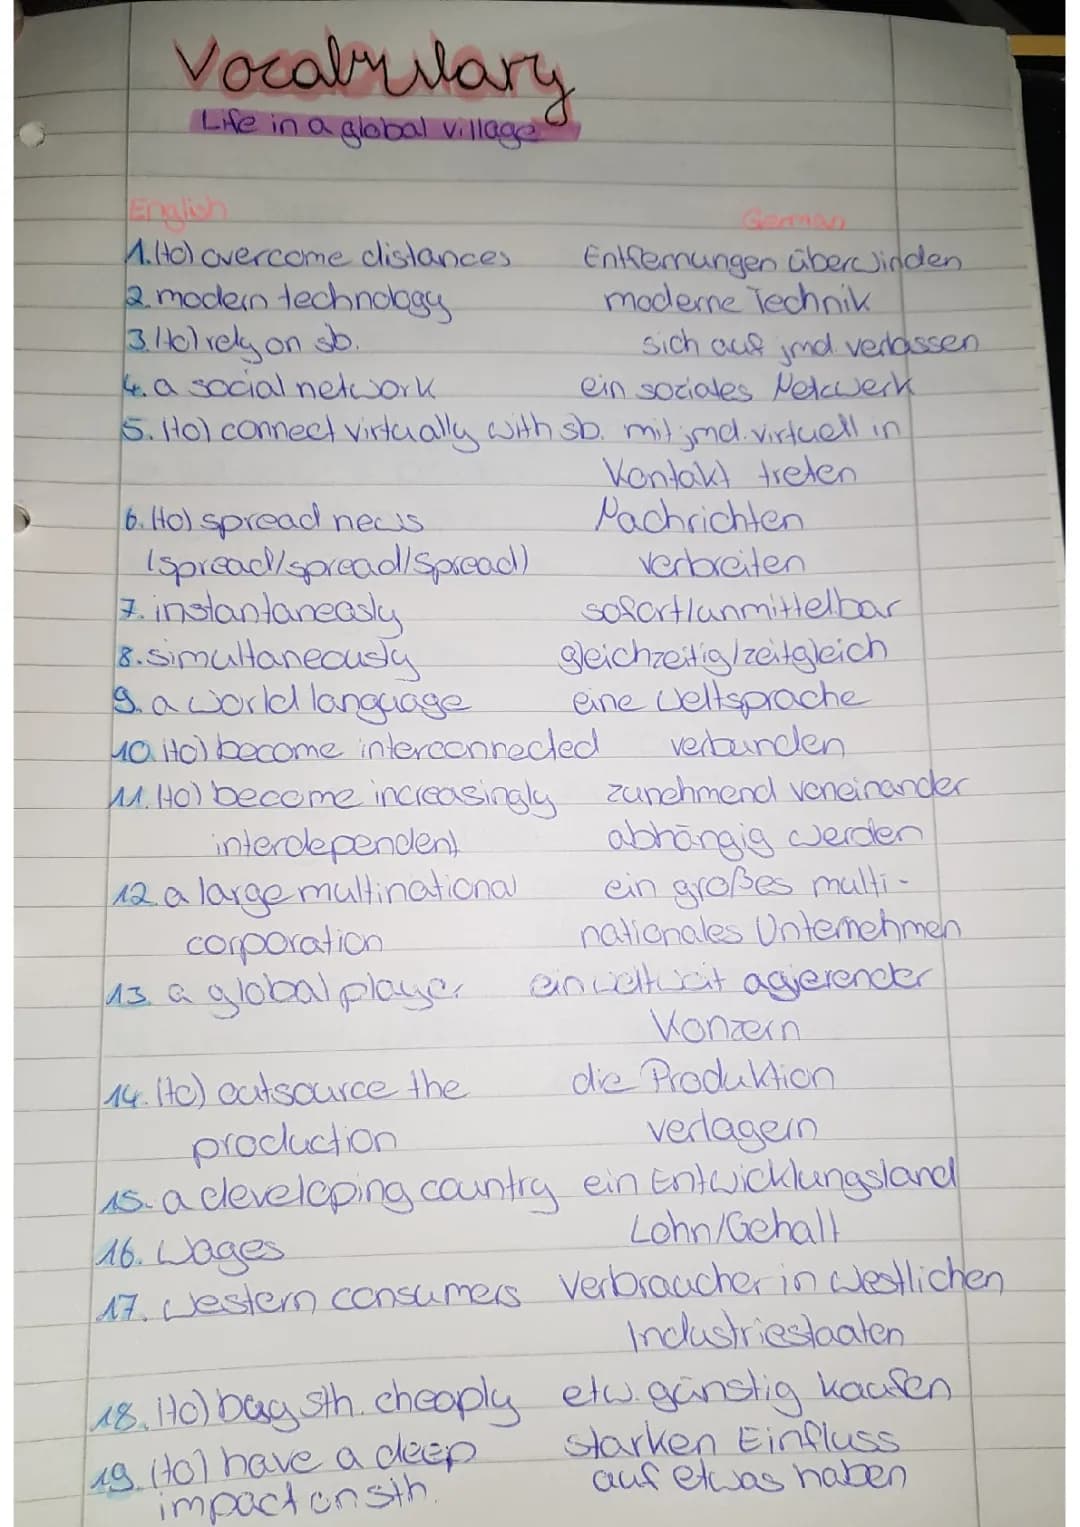 Vocabulary
Life in a global village
English German
1. (to) overcome distances Entfernungen überwinden
2. modern technology moderne Technik
3. (to) rely on sb. sich auf jmd. verlassen
4. a social network ein soziales Netzwerk
5. (to) connect virtually with sb. mit jmd. virtuell in
Kontakt treten
6. (to) spread news Nachrichten
(spread/spread/spread) verbreiten
7. instantaneasly sofort/unmittelbar
8. simultaneously gleichzeitig/zeitgleich
9. a world language eine Weltsprache
10. (to) become interconnected verbunden
11. (to) become increasingly zunehmend voneinander
interdependent abhängig werden
12. a large multinational ein großes multi-
corporation nationales Unternehmen
13. a global player ein weltweit agierender
Konzern
14. (to) outsource the die Produktion
production verlagern
15. a developing country ein Entwicklungsland
16. Wages Lohn/Gehalt
17. Western consumers Verbraucher in westlichen
Industriestaaten
18. (to) buy sth. cheaply etw. günstig kaufen
19. (to) have a deep starken Einfluss
impact on sth. auf etwas haben